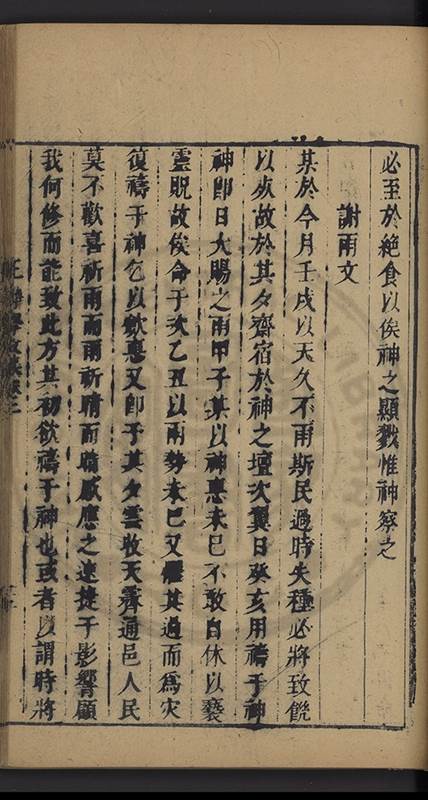 必至於絕食以俟神之顯戮惟神察之
謝雨文
某於今月壬戌以天久不雨斯民過時失種必將致饑
以死故於其夕齋宿於神之壇次翼日癸亥用禱于神
神即日大賜之雨甲子某以神惠未已不敢自休以褻
靈貺故俟命于次乙丑以雨勢未已又懼其過而為灾
復禱于神乞以歛惠又即于其夕雲收天霽通邑人民
莫不歡喜祈雨而雨祈晴而晴感應之速捷于影響顧
我何修而能致此方其初欲禱于神也或者以謂時將